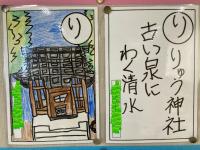 り
り
りゅう神社
古い泉に
わく清水